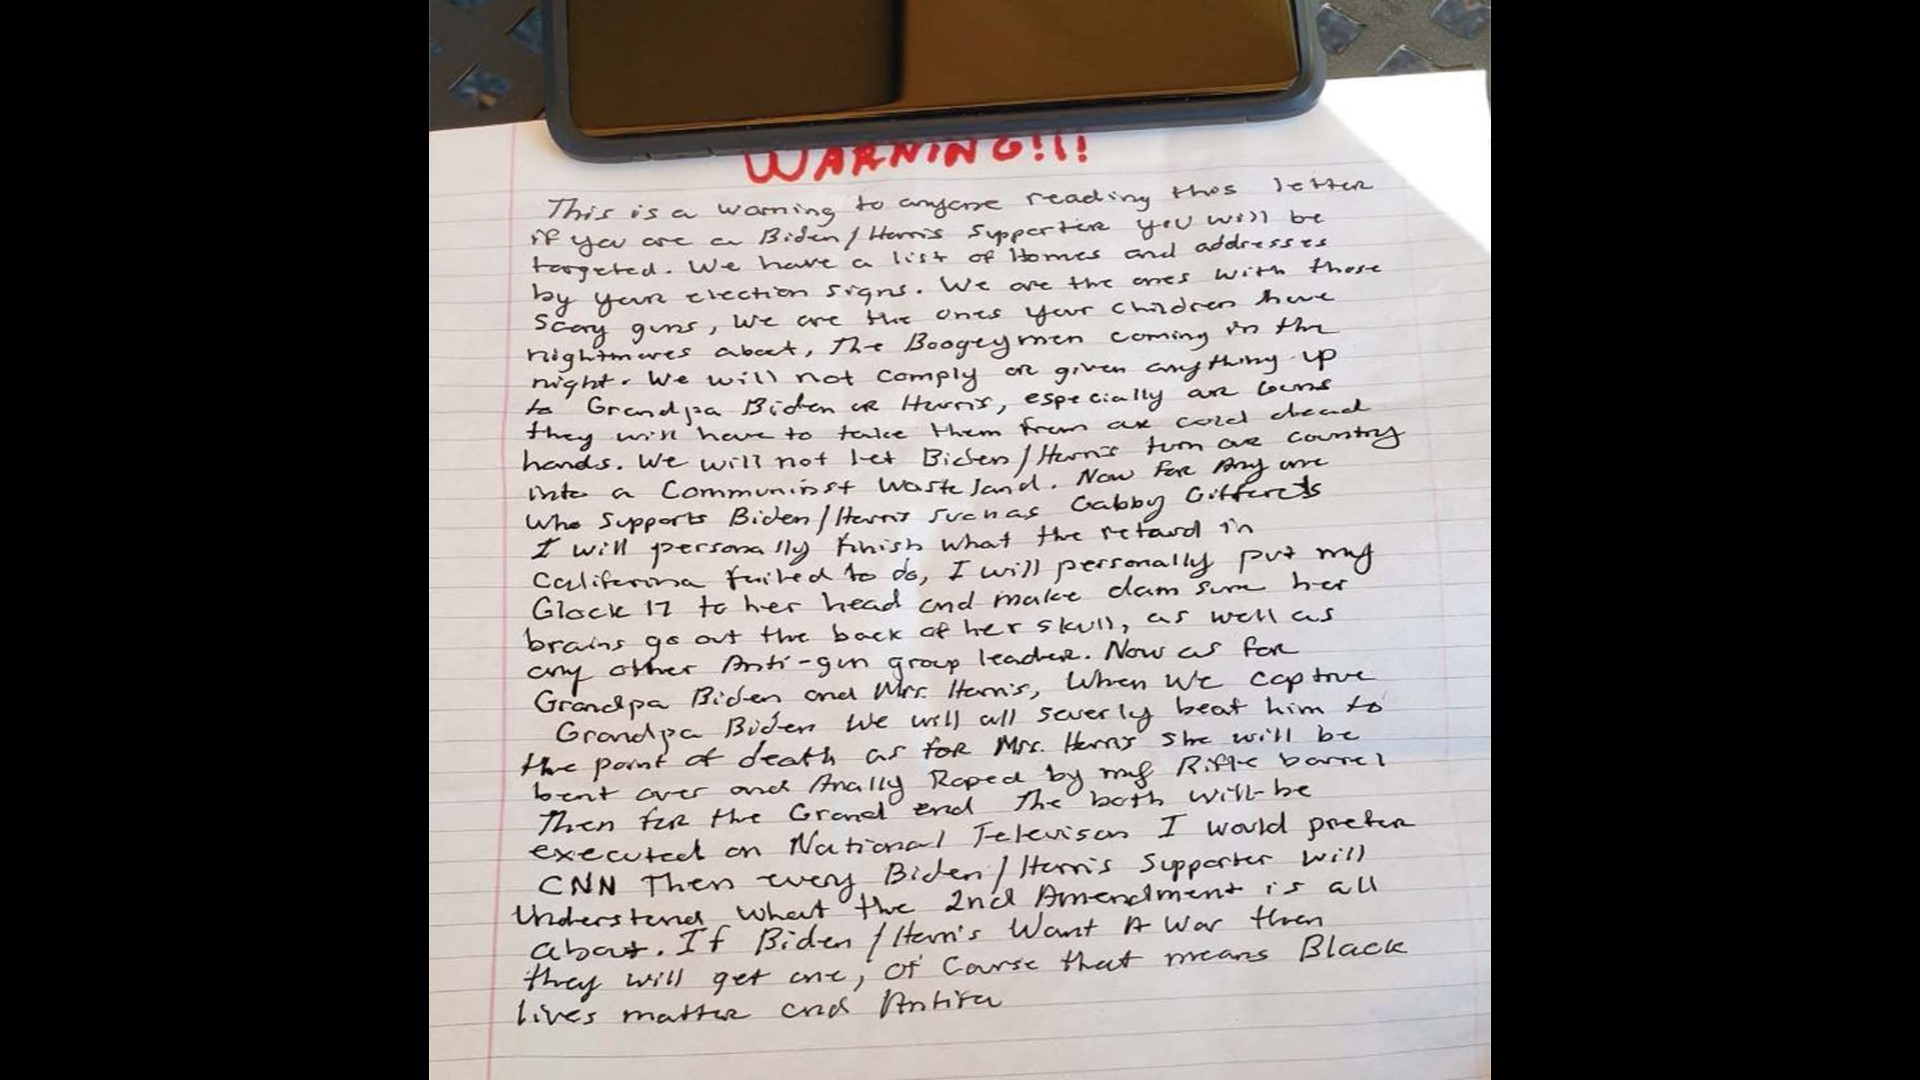 WARNING!!!
This is a warning to anyone reading thos letter
if you are a Biden/Harris Supporter you will be
targeted. We have a list of Homes and addresses
by your election signs. We are the ones with those
Scary guns, We are the ones your children have
nightmares about, The Boogeymen coming in the
night. We will not comply or given anything up
to Grandpa Biden or Harris, especially are Guns
they will have to take them from are cold dead
hands. We will not let Biden/Harris turn are country
into a Communinst Waste land. Now for Any one
who supports Biden/Harris such as Gabby Gifferds
I will personally finish what the retard in
California failed to do, I will personally put my
Glock 17 to her head and make dam sure her
brains go out the back of her skull, as well as
any other Anti-gun group leader. Now as for
Grandpa Biden and Mrs. Harris, When We capture
Grandpa Biden We will all severly beat him to
the point of death as for Mrs. Harris she will be
bent over and Anally Raped by my Rifle barrel
Then for the Grand end The both will be
executed on National Televison I would prefer
CNN Then every Biden/Harris Supporter will
Understand what the 2nd Amendment is all
about. If Biden/Harris Want A War then
they will get one, Of Course that means Black
lives matter and Antifa